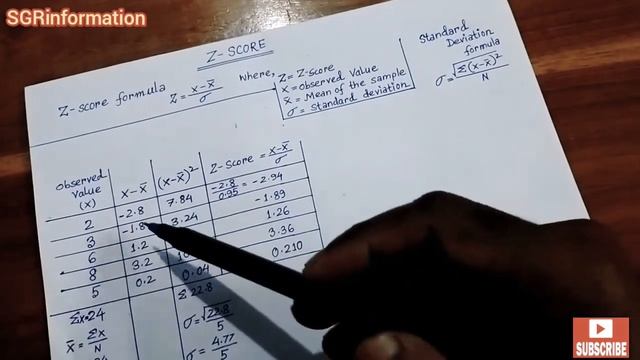 SGRinformation
Z-SCORE
Z-score formula Z = x-x̄/σ
where, Z = Z-score
x = observed value
x̄ = Mean of the sample
σ = standard deviation
Standard Deviation formula
σ = √Σ(x-x̄)²/N
observed value (x) | x-x̄ | (x-x̄)² | Z-score = x-x̄/σ
2 | -2.8 | 7.84 | -2.8/0.95 = -2.94
3 | -1.8 | 3.24 | -1.89
6 | 1.2 | 1.26
8 | 3.2 | 10 | 3.36
5 | 0.2 | 0.04 | 0.210
Σx=24
Σ 22.8
x̄ = Σx/N
σ = √22.8/5
σ = 4.77/5
SUBSCRIBE